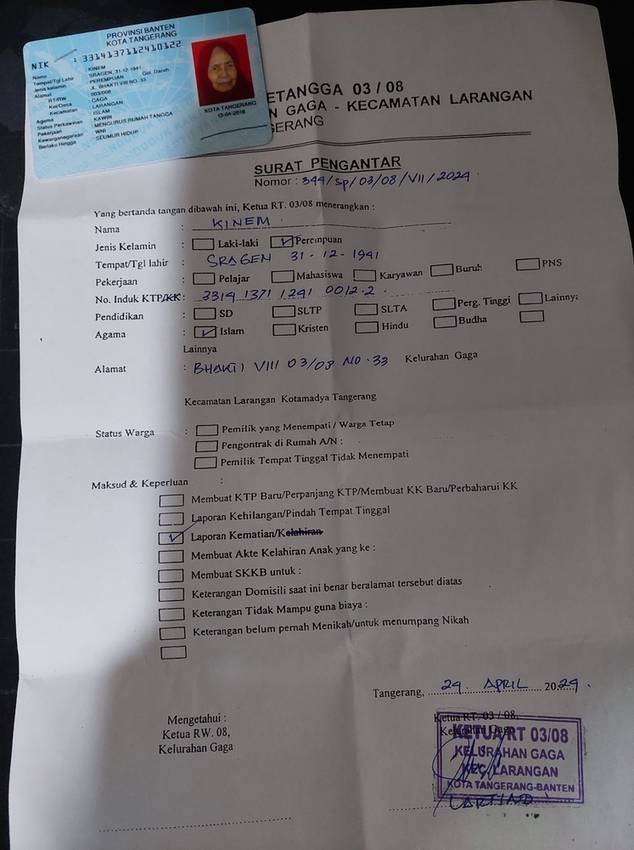 PROVINSI BANTEN
KOTA TANGERANG
NIK : 3314137112410122
Nama : KINEM
Tempat/Tgl Lahir : SRAGEN, 31-12-1941
Jenis kelamin : PEREMPUAN Gol. Darah
Alamat : JL. BHAKTI VIII NO. 33
RT/RW : 003/008
Kel/Desa : GAGA
Kecamatan : LARANGAN
Agama : ISLAM
Status Perkawinan : KAWIN
Pekerjaan : MENGURUS RUMAH TANGGA
Kewarganegaraan : WNI
Berlaku Hingga : SEUMUR HIDUP
KOTA TANGERANG
ETANGGA 03 / 08
N GAGA - KECAMATAN LARANGAN
GERANG
SURAT PENGANTAR
Nomor : 344/SP/03/08/VII/2024
Yang bertanda tangan dibawah ini, Ketua RT. 03/08 menerangkan :
Nama : KINEM
Jenis Kelamin : Laki-laki Perempuan
Tempat/Tgl lahir : SRAGEN 31-12-1941
Pekerjaan : Pelajar Mahasiswa Karyawan Buruh PNS
No. Induk KTP/KK : 3314 1371 1241 0012.2
Pendidikan : SD SLTP SLTA Perg. Tinggi Lainnya
Agama : Islam Kristen Hindu Budha
Lainnya
Alamat : BHAKTI VIII 03/08 NO.33 Kelurahan Gaga
Kecamatan Larangan Kotamadya Tangerang
Status Warga : Pemilik yang Menempati / Warga Tetap
Pengontrak di Rumah A/N :
Pemilik Tempat Tinggal Tidak Menempati
Maksud & Keperluan :
Membuat KTP Baru/Perpanjang KTP/Membuat KK Baru/Perbaharui KK
Laporan Kehilangan/Pindah Tempat Tinggal
Laporan Kematian/Kelahiran
Membuat Akte Kelahiran Anak yang ke :
Membuat SKKB untuk :
Keterangan Domisili saat ini benar beralamat tersebut diatas
Keterangan Tidak Mampu guna biaya :
Keterangan belum pernah Menikah/untuk menumpang Nikah
Tangerang, 24 APRIL 2024.
Mengetahui :
Ketua RW. 08,
Kelurahan Gaga
Ketua RT. 03 / 08,
Kelurahan Gaga
KETUA RT 03/08
KELURAHAN GAGA
KEC. LARANGAN
KOTA TANGERANG-BANTEN